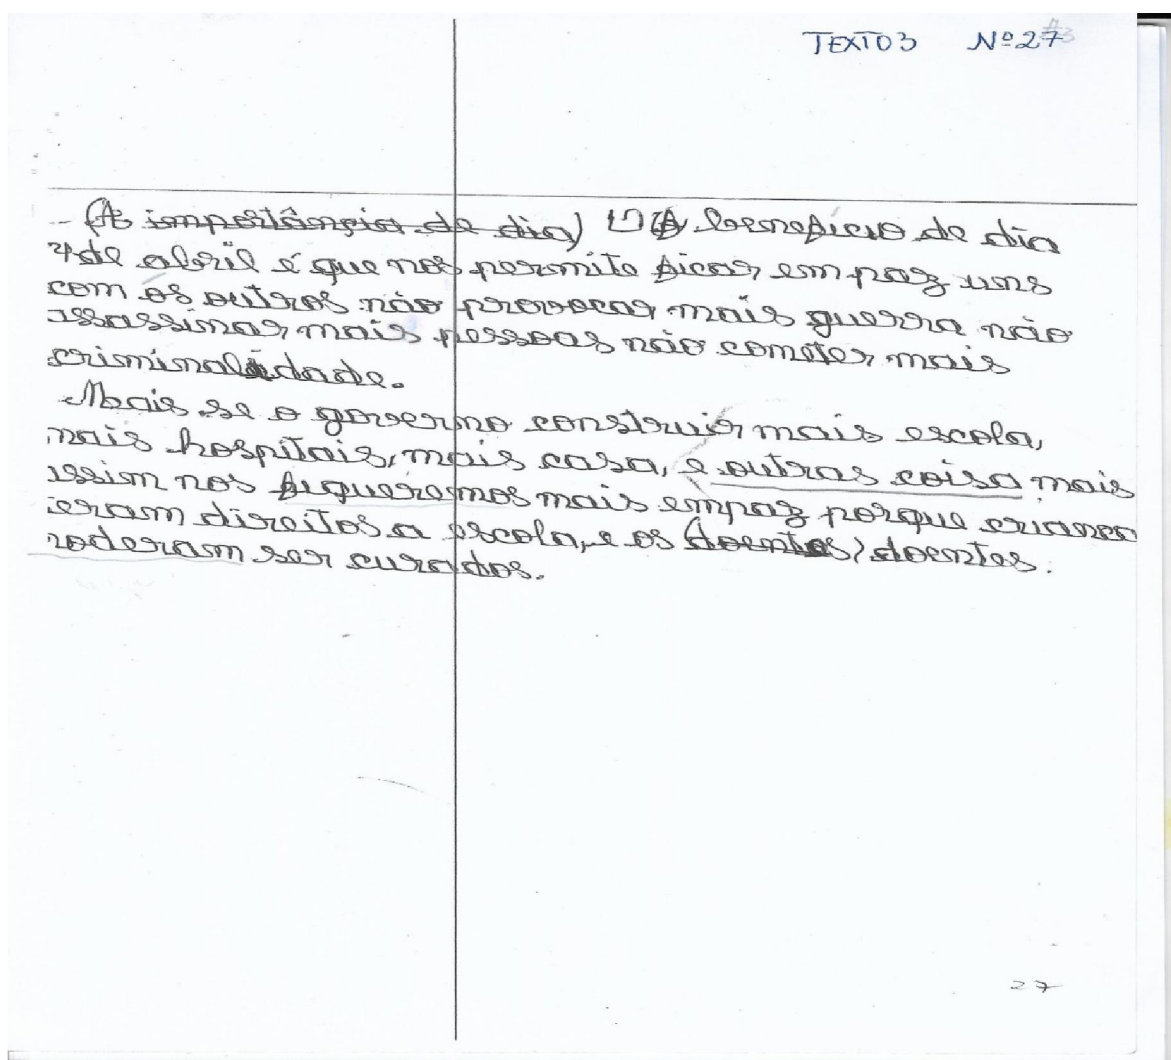 TEXTO 3 Nº 27
- (A importância de dia) O benefício de dia
4 de abril é que nos permite ficar em paz uns
com os outros não provocar mais guerra não
assassinar mais pessoas não cometer mais
criminalidade.
Mais se o governo construir mais escola,
mais hospitais, mais casa, e outras coisa mais
assim nos fiqueremos mais em paz porque crianca
teram direitos a escola, e os (doentes) doentes.
poderam ser curados.
27